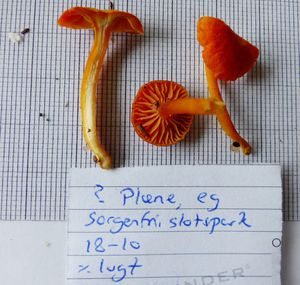 ? Plæne, eg
Sorgenfri slotspark
18-10
% lugt
INDER®